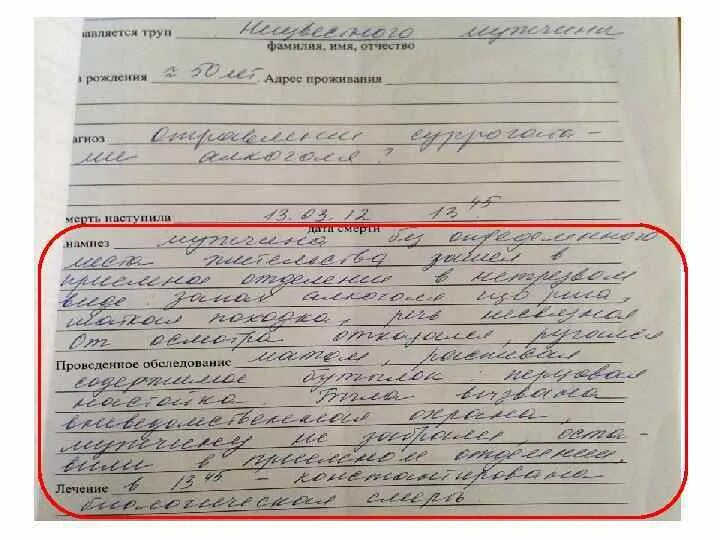 авляется труп Неизвестного мужчины
фамилия, имя, отчество
рождения ≈ 50 лет. Адрес проживания
агноз отравление суррогата-
ми алкоголя?
мерть наступила 13.03.12 13 45
дата смерти
намнез мужчина без определенного
места жительства зашел в
приемное отделение в нетрезвом
виде: запах алкоголя изо рта,
шаткая походка, речь несвязная
От осмотра отказался, ругался
Проведенное обследование матом, распивал
содержимое бутылок: перцовая
настойка. Была вызвана
вневедомственная охрана,
мужчину не забрали, оста-
вили в приемном отделении.
Лечение в 13 45 - констатирована
биологическая смерть